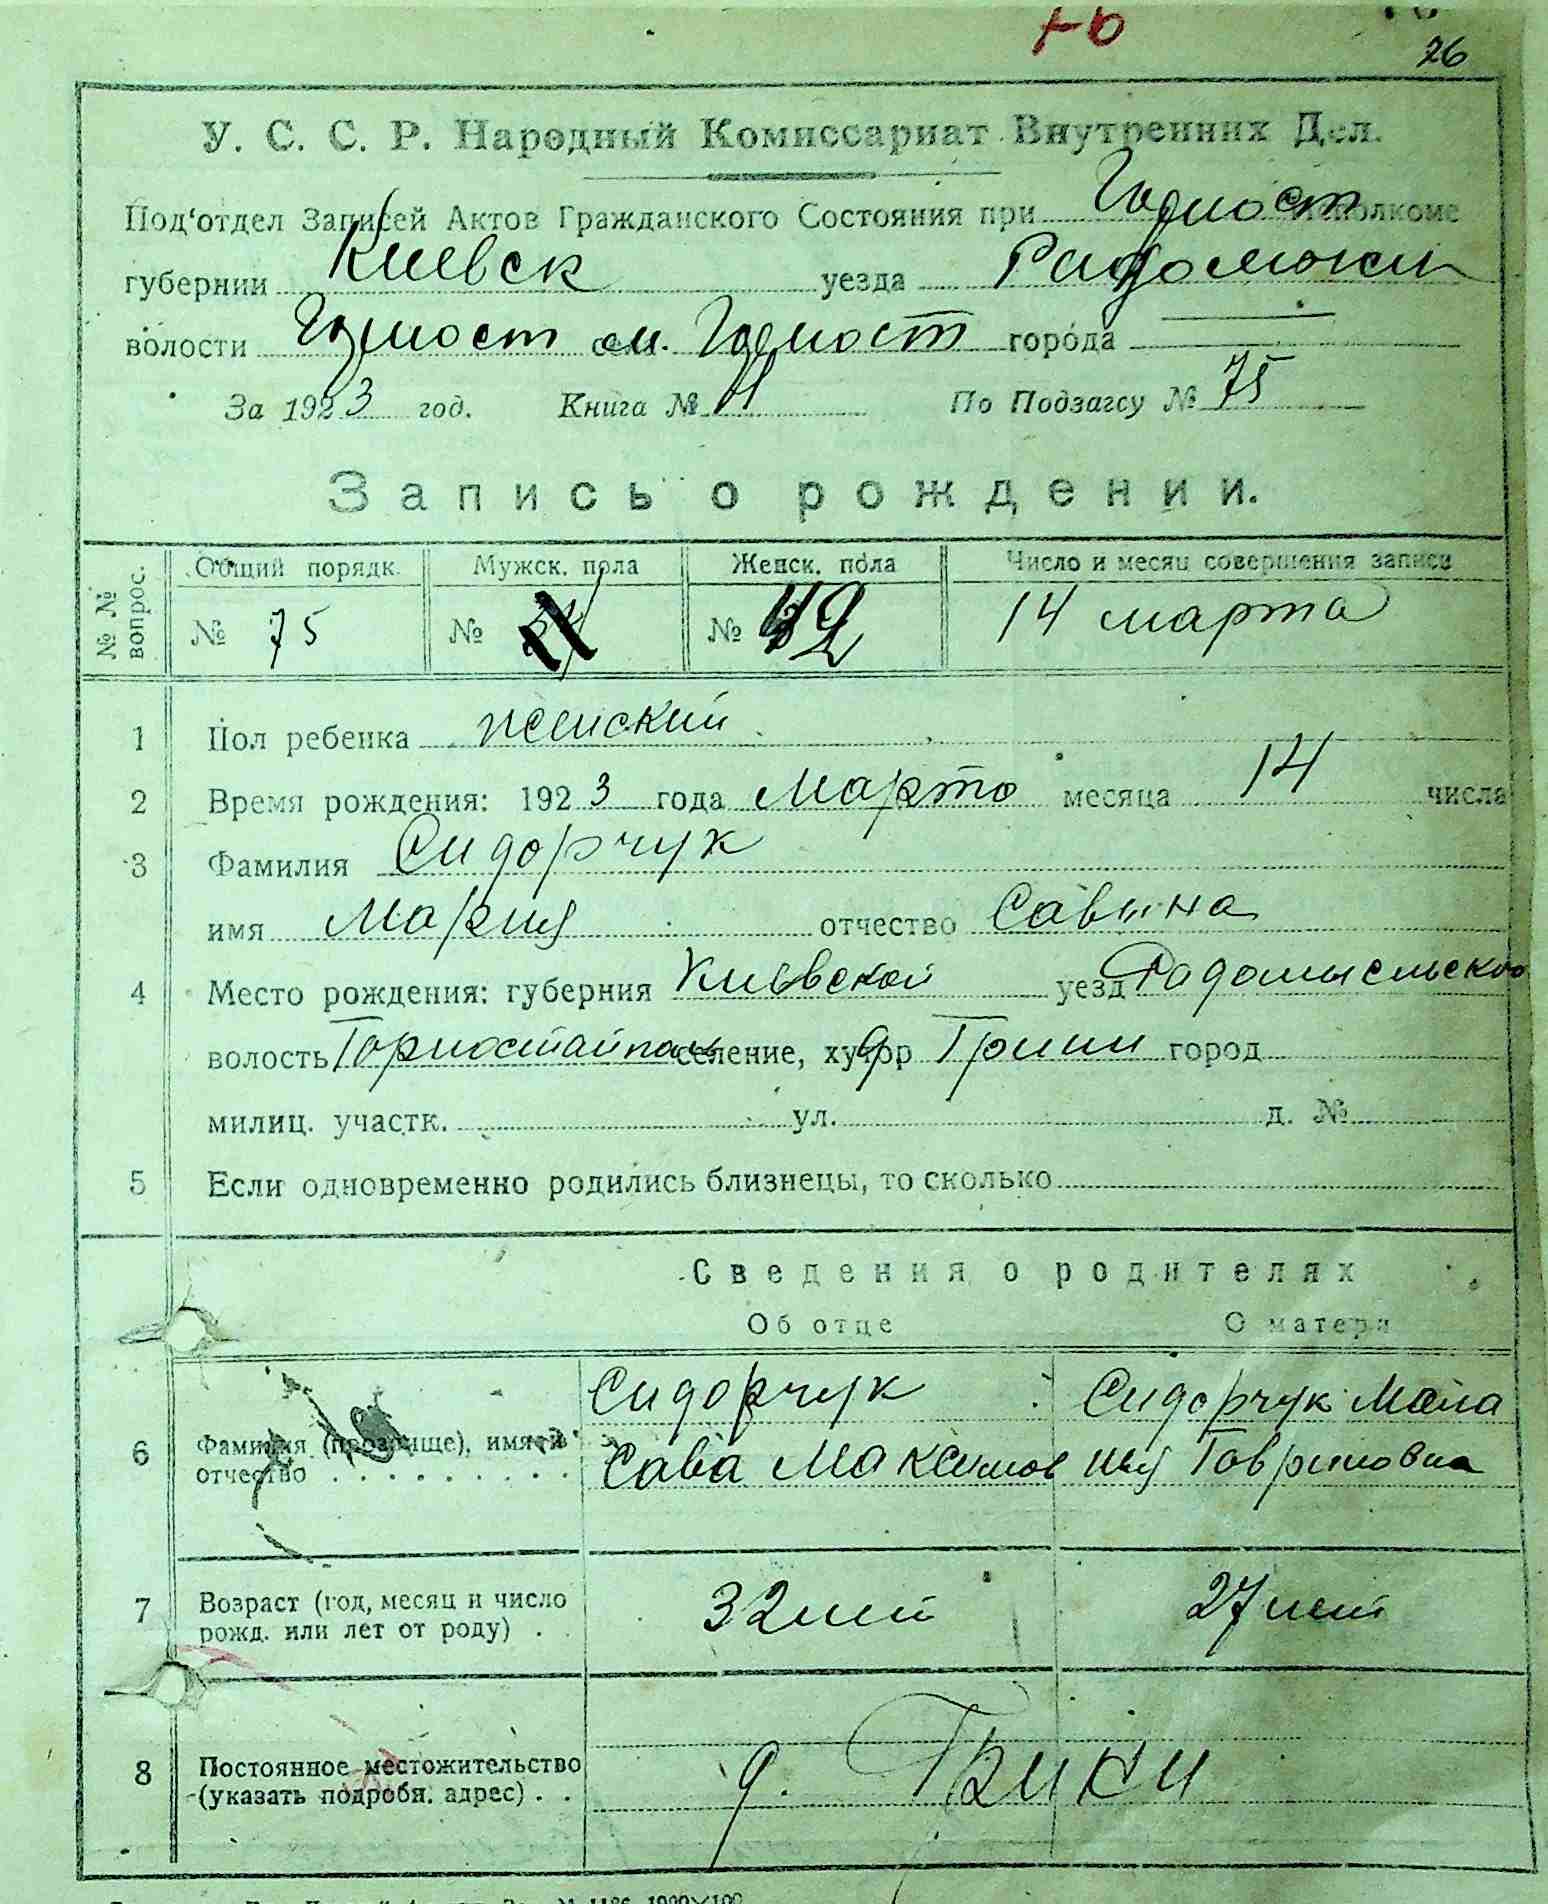 76
У. С. С. Р. Народный Комиссариат Внутренних Дел.
Под‘отдел Записей Актов Гражданского Состояния при Горност исполкоме
губернии Киевск уезда
волости Горност м. Горност города
За 1923 год. Книга № По Подзагсу № 75
Запись о рождении.
№ № вопрос. Общий порядк. Мужск. пола Женск. пола Число и месяц совершения записи
№ 75 № № 42 14 марта
1 Пол ребенка женский
2 Время рождения: 1923 года Марта месяца 14 числа
3 Фамилия Сидорчук
имя Мария отчество Савина
4 Место рождения: губерния Киевской уезд Радомысльского
волость Горностайполь селение, хутор д Грини город
милиц. участк. ул. д. №
5 Если одновременно родились близнецы, то сколько
Сведения о родителях
Об отце О матери
Сидорчук Сидорчук
6 Фамилия (прозвище), имя и Сава Максимов Гавриловна
отчество
7 Возраст (год, месяц и число 32 лет 27 лет
рожд. или лет от роду)
8 Постоянное местожительство д. Грини
(указать подробн. адрес)